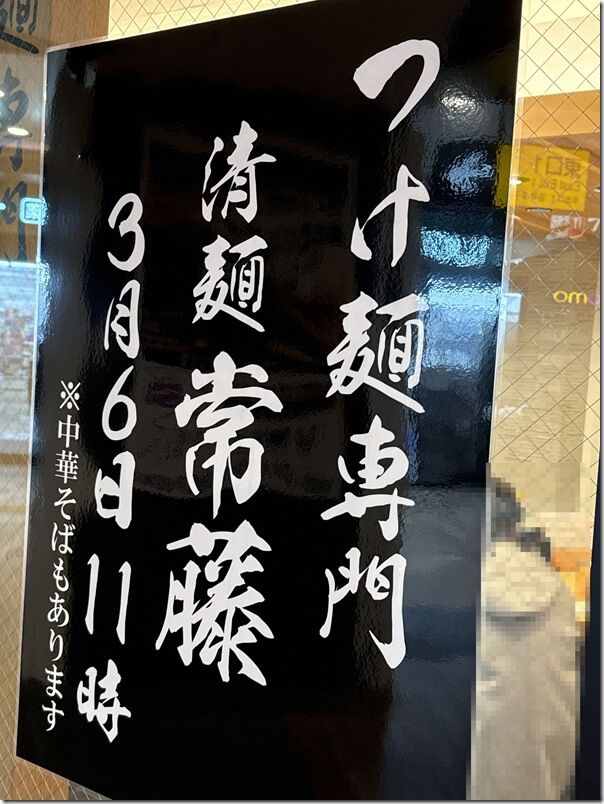 つけ麺専門
清麺 常藤
3月6日 11時
※中華そばもあります
東口1
East Exit 1